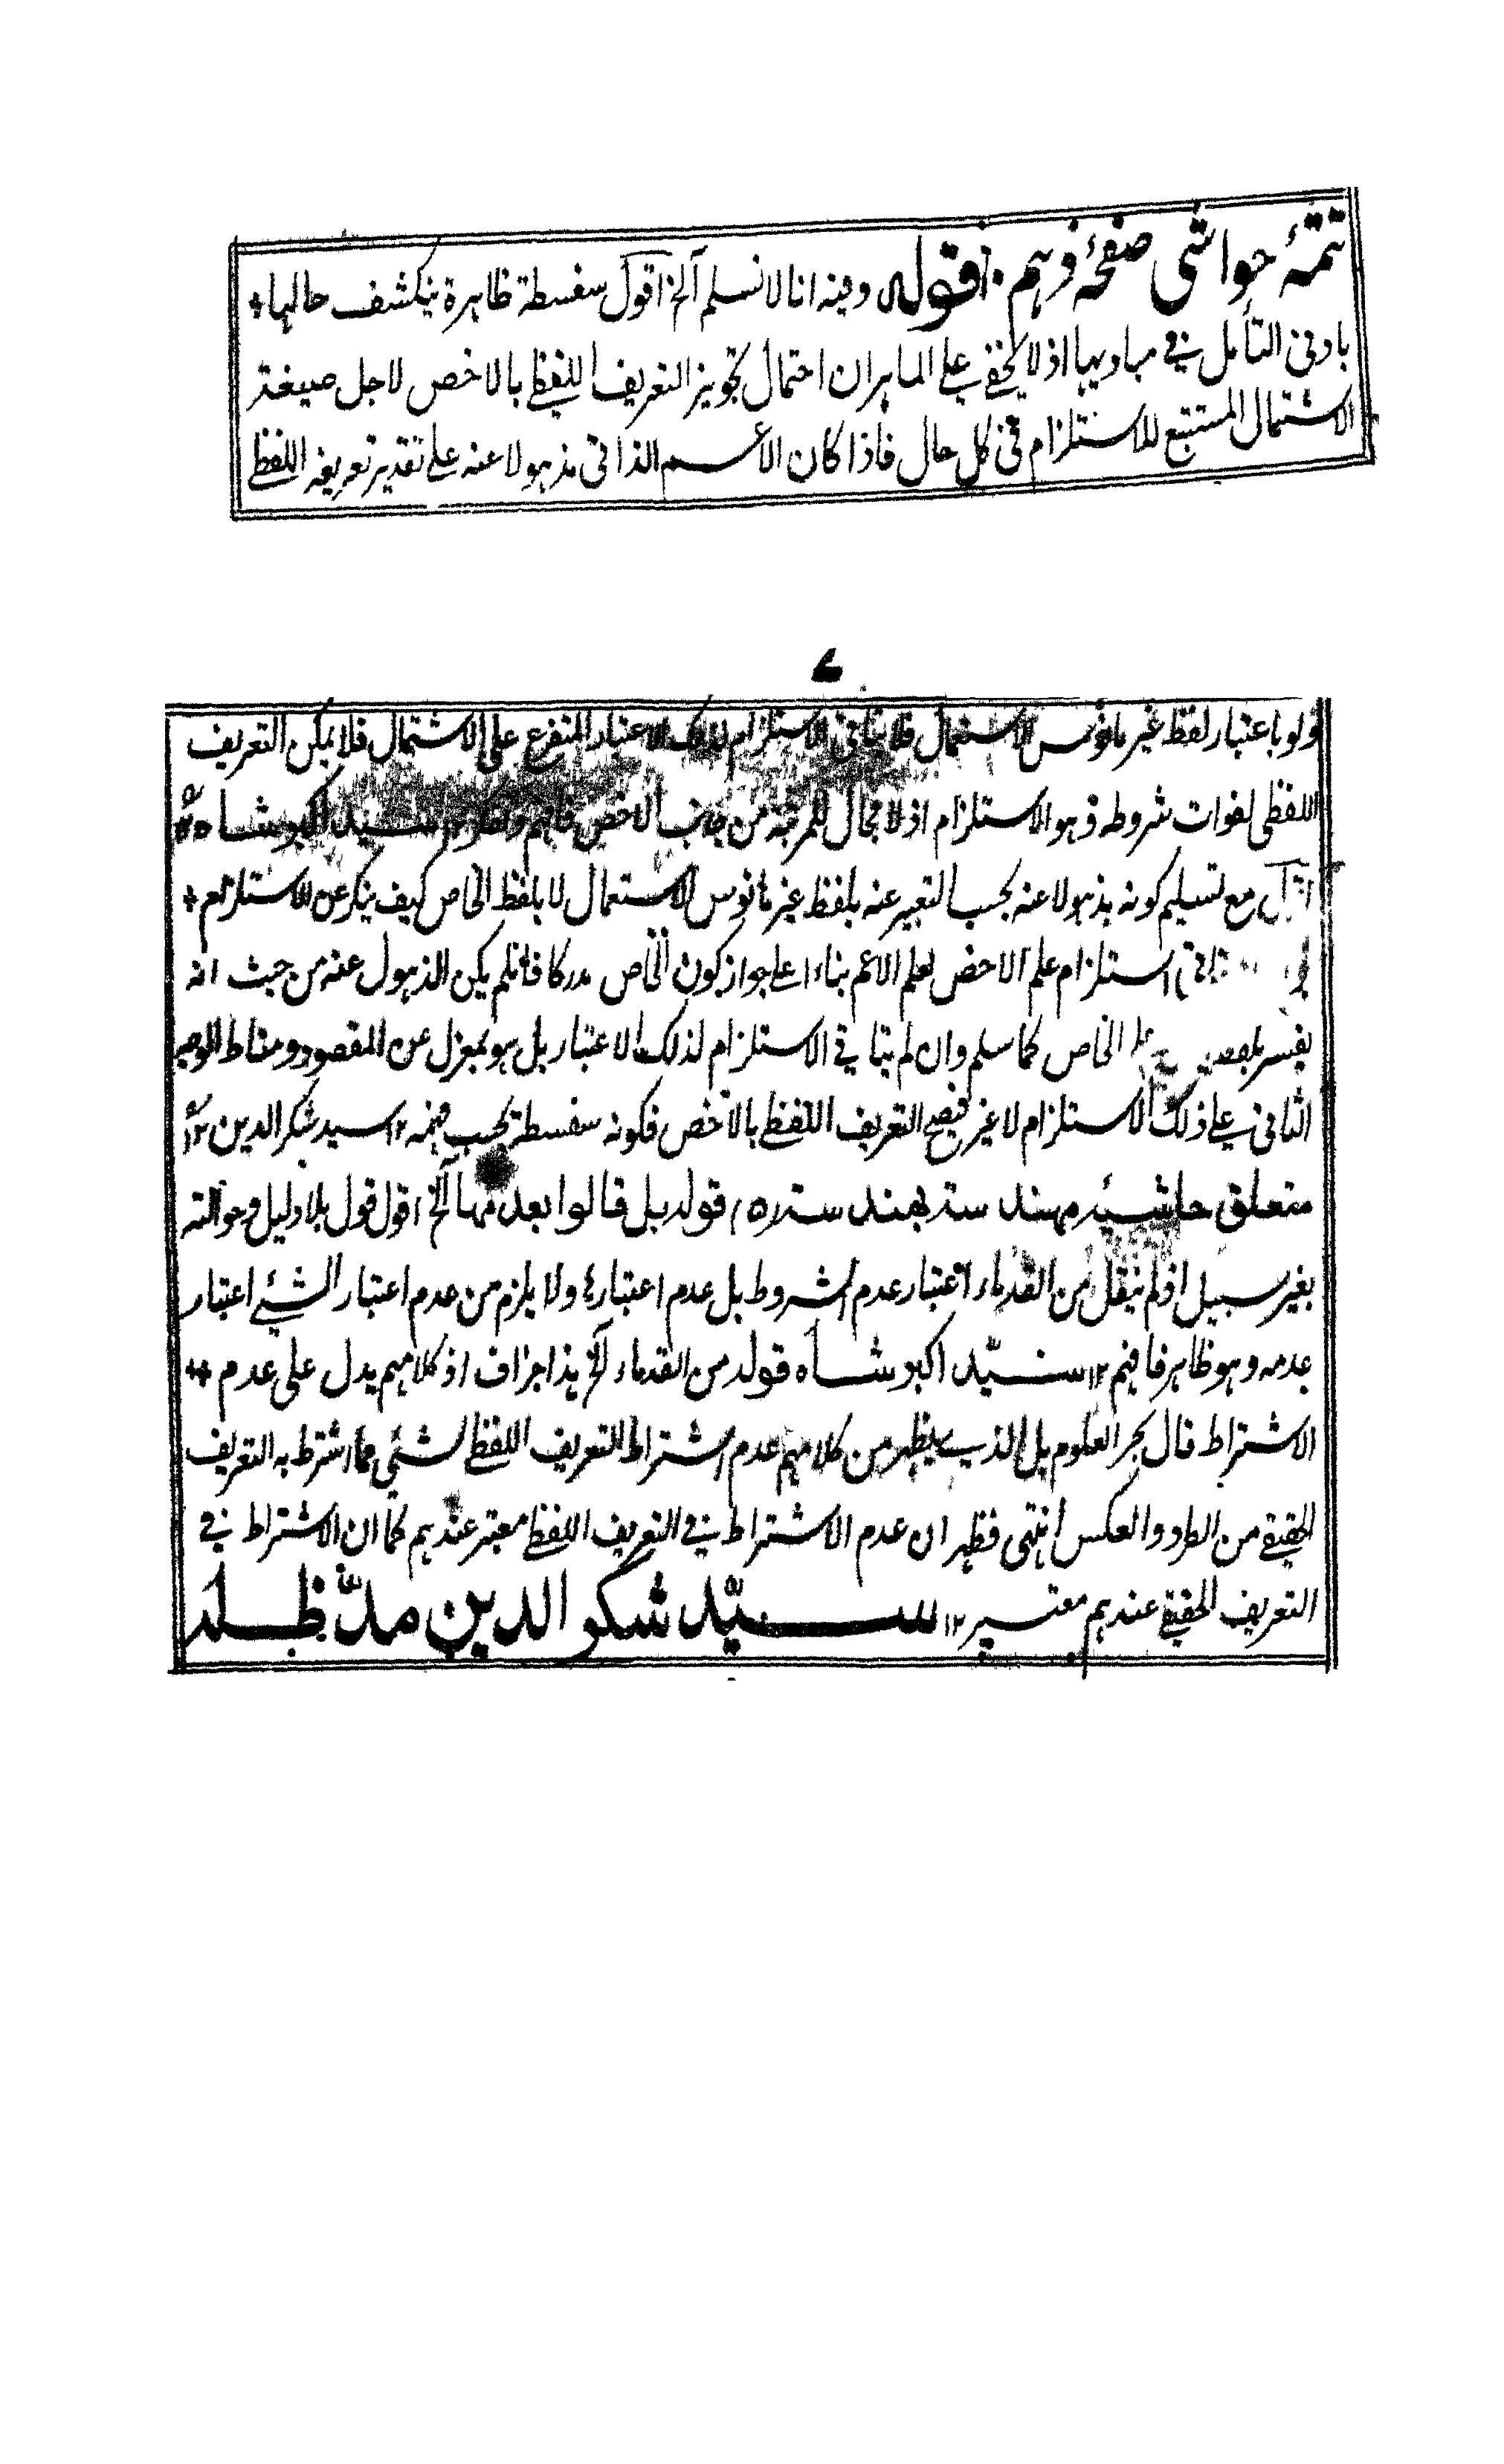 تتمۂ حواشی صفحۂ وہم ۱۰ قوله وفيه انا لا نسلم آلخ اقول سفسطة ظاهرة ينكشف حالها
بادنى التأمل في مباديها اذ لا يخفى على الماهران احتمال تجويز التعريف اللفظي بالاخص لاجل صيغة
الاشتمال المستتبع للاستلزام في كل حال فاذا كان الاعم الذاتي مذهولا عنه على تقدير تعريفه اللفظي
ولو باعتبار لفظ غير مانوس الاستعمال فلا ينافي الاستلزام لذلك الاعتبار المتفرع على الاشتمال فلا يمكن التعريف
اللفظي لفوات شروطه وهو الاستلزام اذ لا مجال للمرتبة من جانب الاخص فافهم سيد اكبر شاه
مع تسليم كونه مذهولا عنه بحسب التعبير عنه بلفظ غير مانوس الاستعمال لا بلفظ الخاص كيف ينكر عن الاستلزام
استلزام علم الاخص لعلم الاعم بناءا على جواز كون الخاص مدركا فانلم يكن الذهول عنه من حيث انه
يفسر بلفظ الخاص كما سلم وان لم ينافي الاستلزام لذلك الاعتبار بل هو بمعزل عن المقصود ومناط التوجيه
الثاني على ذلك الاستلزام لا غير فيصح التعريف اللفظي بالاخص فكونه سفسطة بحسب فهمه ۱۲ سيد شكر الدين ۱۲
متعلق حاشيۂ مهند ستر بهند ستر (۵) قوله بل قالوا بعدمها آلخ اقول قول بلا دليل وحوالته
بغير سبيل اذ لم ينقل من القدماء اعتبار عدم الشروط بل عدم اعتبارها ولا يلزم من عدم اعتبار الشيء اعتبار
عدمه وهو ظاهر فافهم ۱۲ سيّد اكبر شاه قوله من القدماء آلخ هذا جزاف اذ كلامهم يدل على عدم
الاشتراط قال بحر العلوم بل الذي يظهر من كلامهم عدم اشتراط التعريف اللفظي لشئي مما اشترط به التعريف
الحقيقي من الطرد والعكس انتهى فظهر ان عدم الاشتراط في التعريف اللفظي معتبر عندهم كما ان الاشتراط في
التعريف الحقيقي عندهم معتبر ۱۲ سيّد شكر الدين مدّ ظله